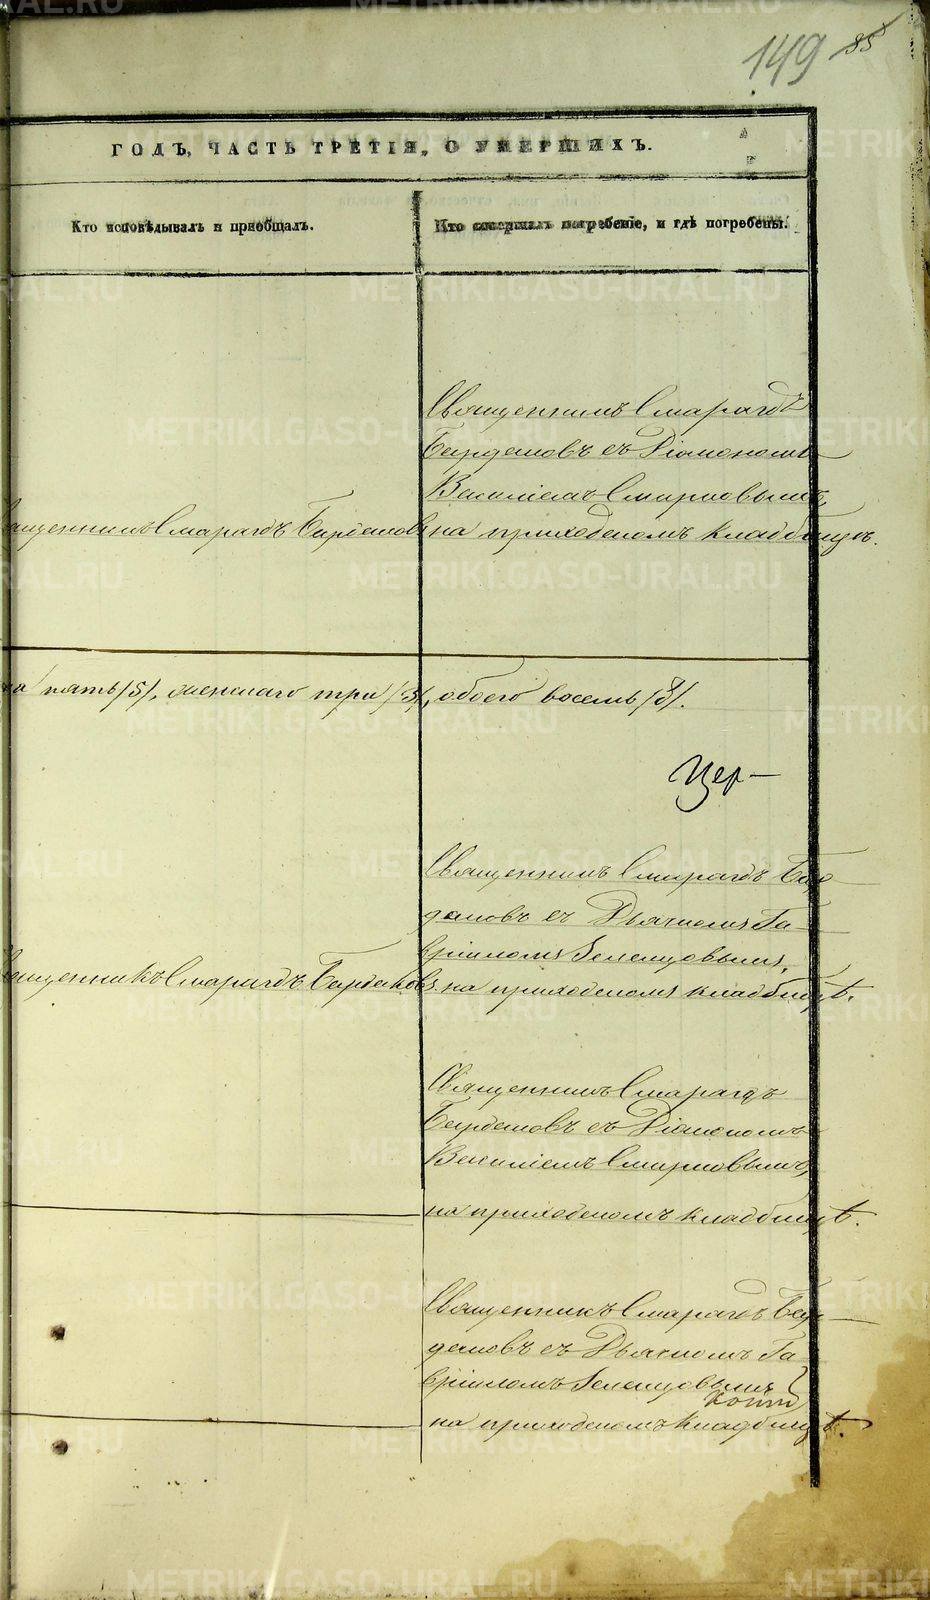 149 85
ГОДЪ, ЧАСТЬ ТРЕТІЯ, О УМЕРШИХЪ.
Кто исповѣдывалъ и пріобщалъ.
Кто совершалъ погребеніе, и гдѣ погребены.
Священникъ Смарагдъ
съ Діакономъ
Василіемъ Смирновымъ,
Священникъ Смарагдъ
на приходскомъ кладбищѣ.
пять /5/, женскаго три /3/, обоего восемь /8/.
Цер-
Священникъ Смарагдъ
съ Дьячкомъ Га-
вріиломъ
Священникъ Смарагдъ
на приходскомъ кладбищѣ.
Священникъ Смарагдъ
съ Діакономъ
Василіемъ Смирновымъ,
на приходскомъ кладбищѣ.
Священникъ Смарагдъ
съ Дьячкомъ Га-
вріиломъ
на приходскомъ кладбищѣ.
METRIKI.GASO-URAL.RU